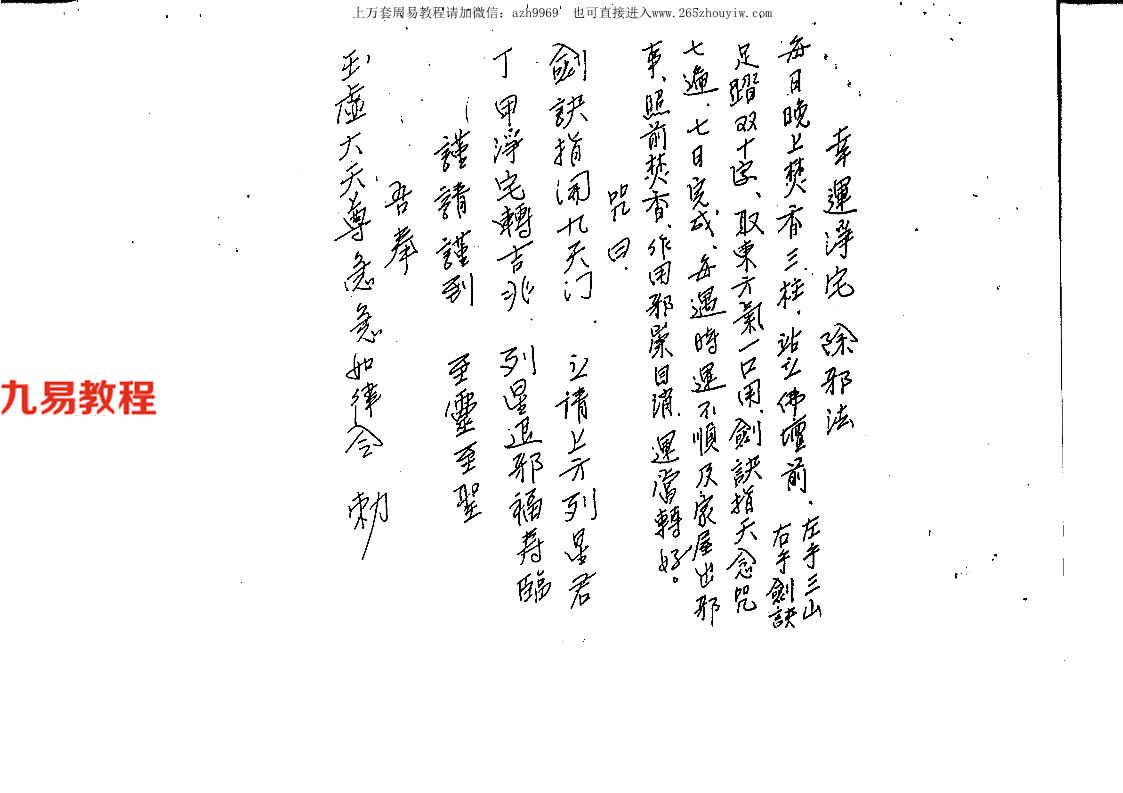 上万套周易教程请加微信：azh9969 也可直接进入www.265zhouyiw.com
幸運淨宅 除邪法
每日晚上焚香三柱．站立佛壇前．左手三山
右手劍訣
足躍双十字、取東方氣一口用、劍訣指天念咒
七遍．七日完成、每遇時運不順及家屋出邪
事、照前焚香、作用邪自消．運當轉好。
咒曰．
劍訣指開九天门．立請上方列星君
丁甲淨宅轉吉兆 列星退邪福寿臨
謹請謹到 至靈至聖
吾奉
玉虚大天尊急急如律令 勅
九易教程